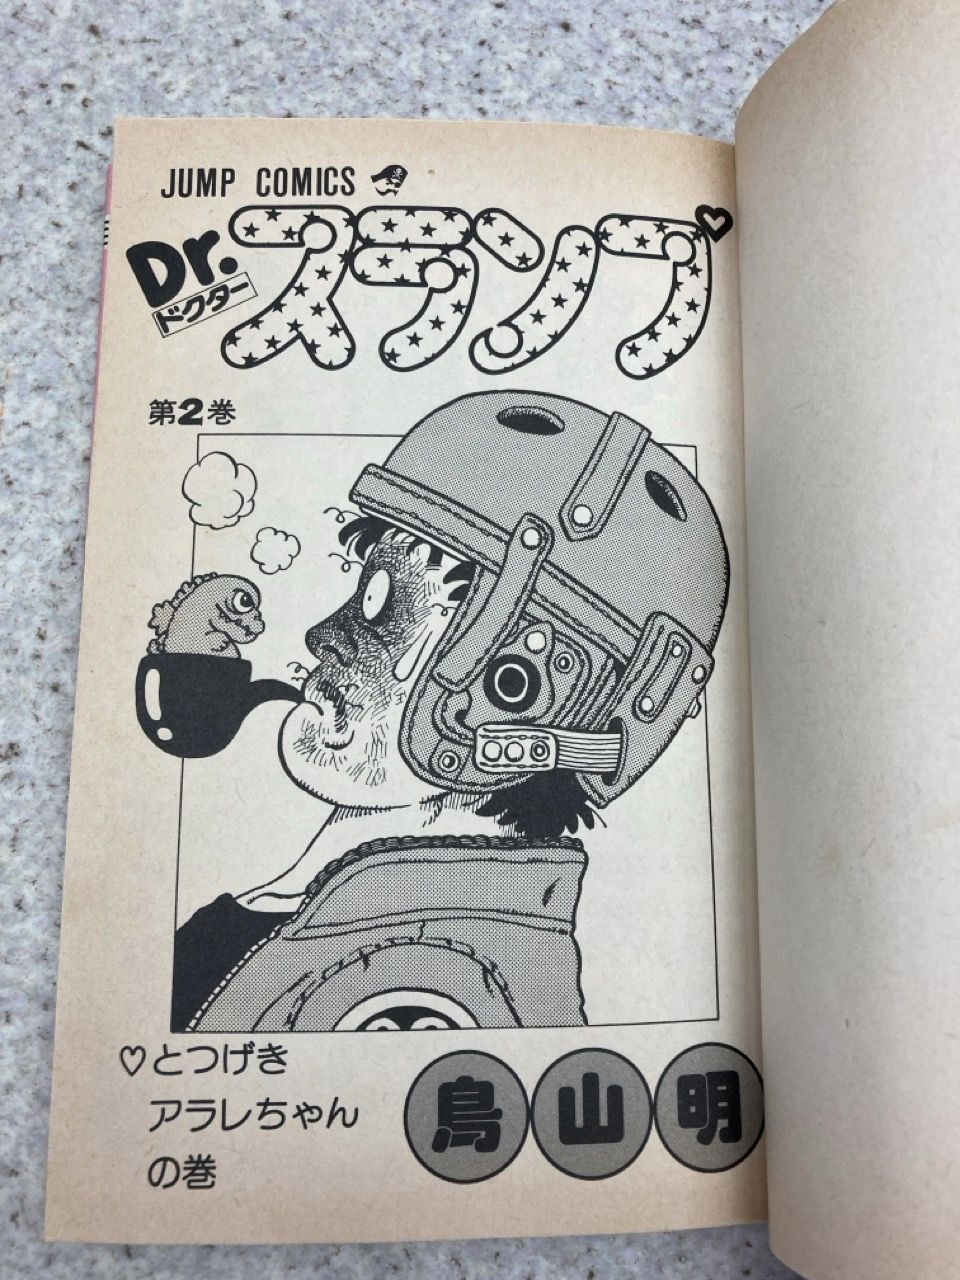 JUMP COMICS
Dr.スランプ♡
ドクター
第2巻
♡とつげき
アラレちゃん
の巻
鳥山明